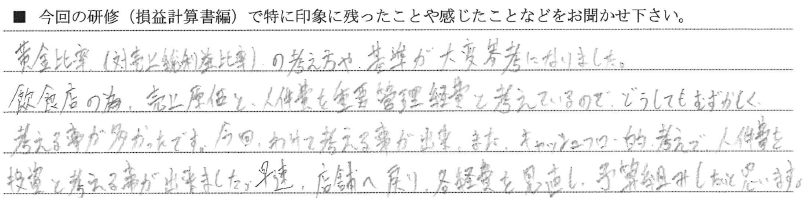 ■ 今回の研修（損益計算書編）で特に印象に残ったことや感じたことなどをお聞かせ下さい。
黄金比率（対売上総利益比率）の考え方や、基準が大変参考になりました。
飲食店の為、売上原価と、人件費を重要管理経費と考えているので、どうしてもむずかしく
考える事が多かったです。今回、わけて考える事が出来、また、キャッシュフロー的考えで、人件費を
投資と考える事が出来ました。早速、店舗へ戻り、各経費を見直し、予算組みしたいと思います。